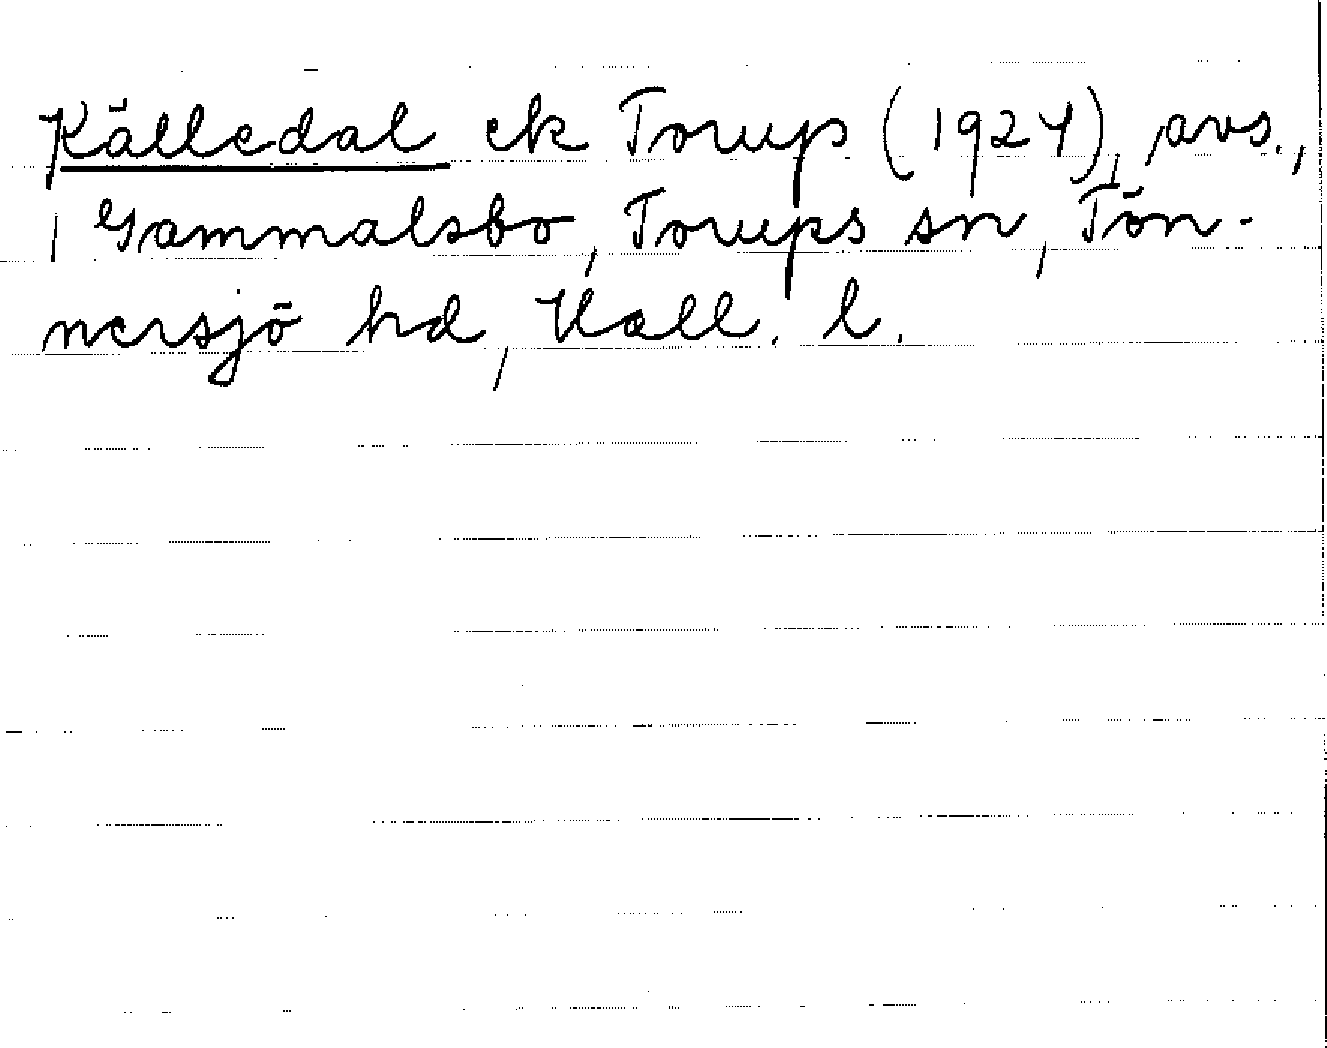 Källedal ek Torup (1927), avs.,
i Gammalsbo, Torups sn, Tön-
nersjö hd, Hall. l.